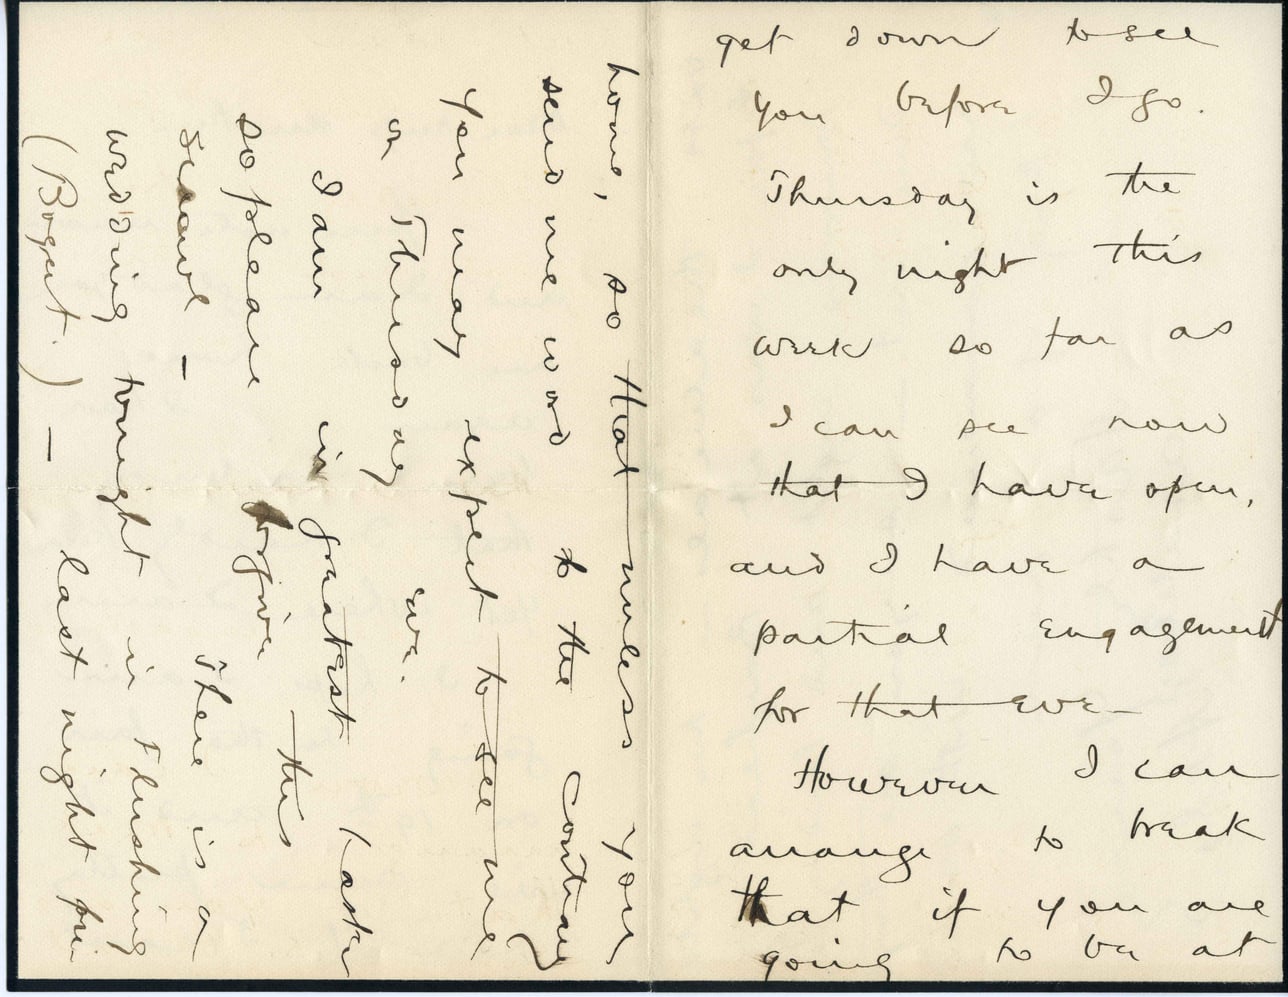 get down to see
you before I go.
Thursday is the
only night this
week so far as
I can see now
that I have open,
and I have a
partial engagement
for that eve—
However I can
arrange to break
that if you are
going to be at
home, so that unless you
send me word to the contrary
you may expect to see me
on Thursday eve.
I am in greatest haste
so please forgive this
scrawl — There is a
wedding tonight in Flushing
(Bogert.) — last night for